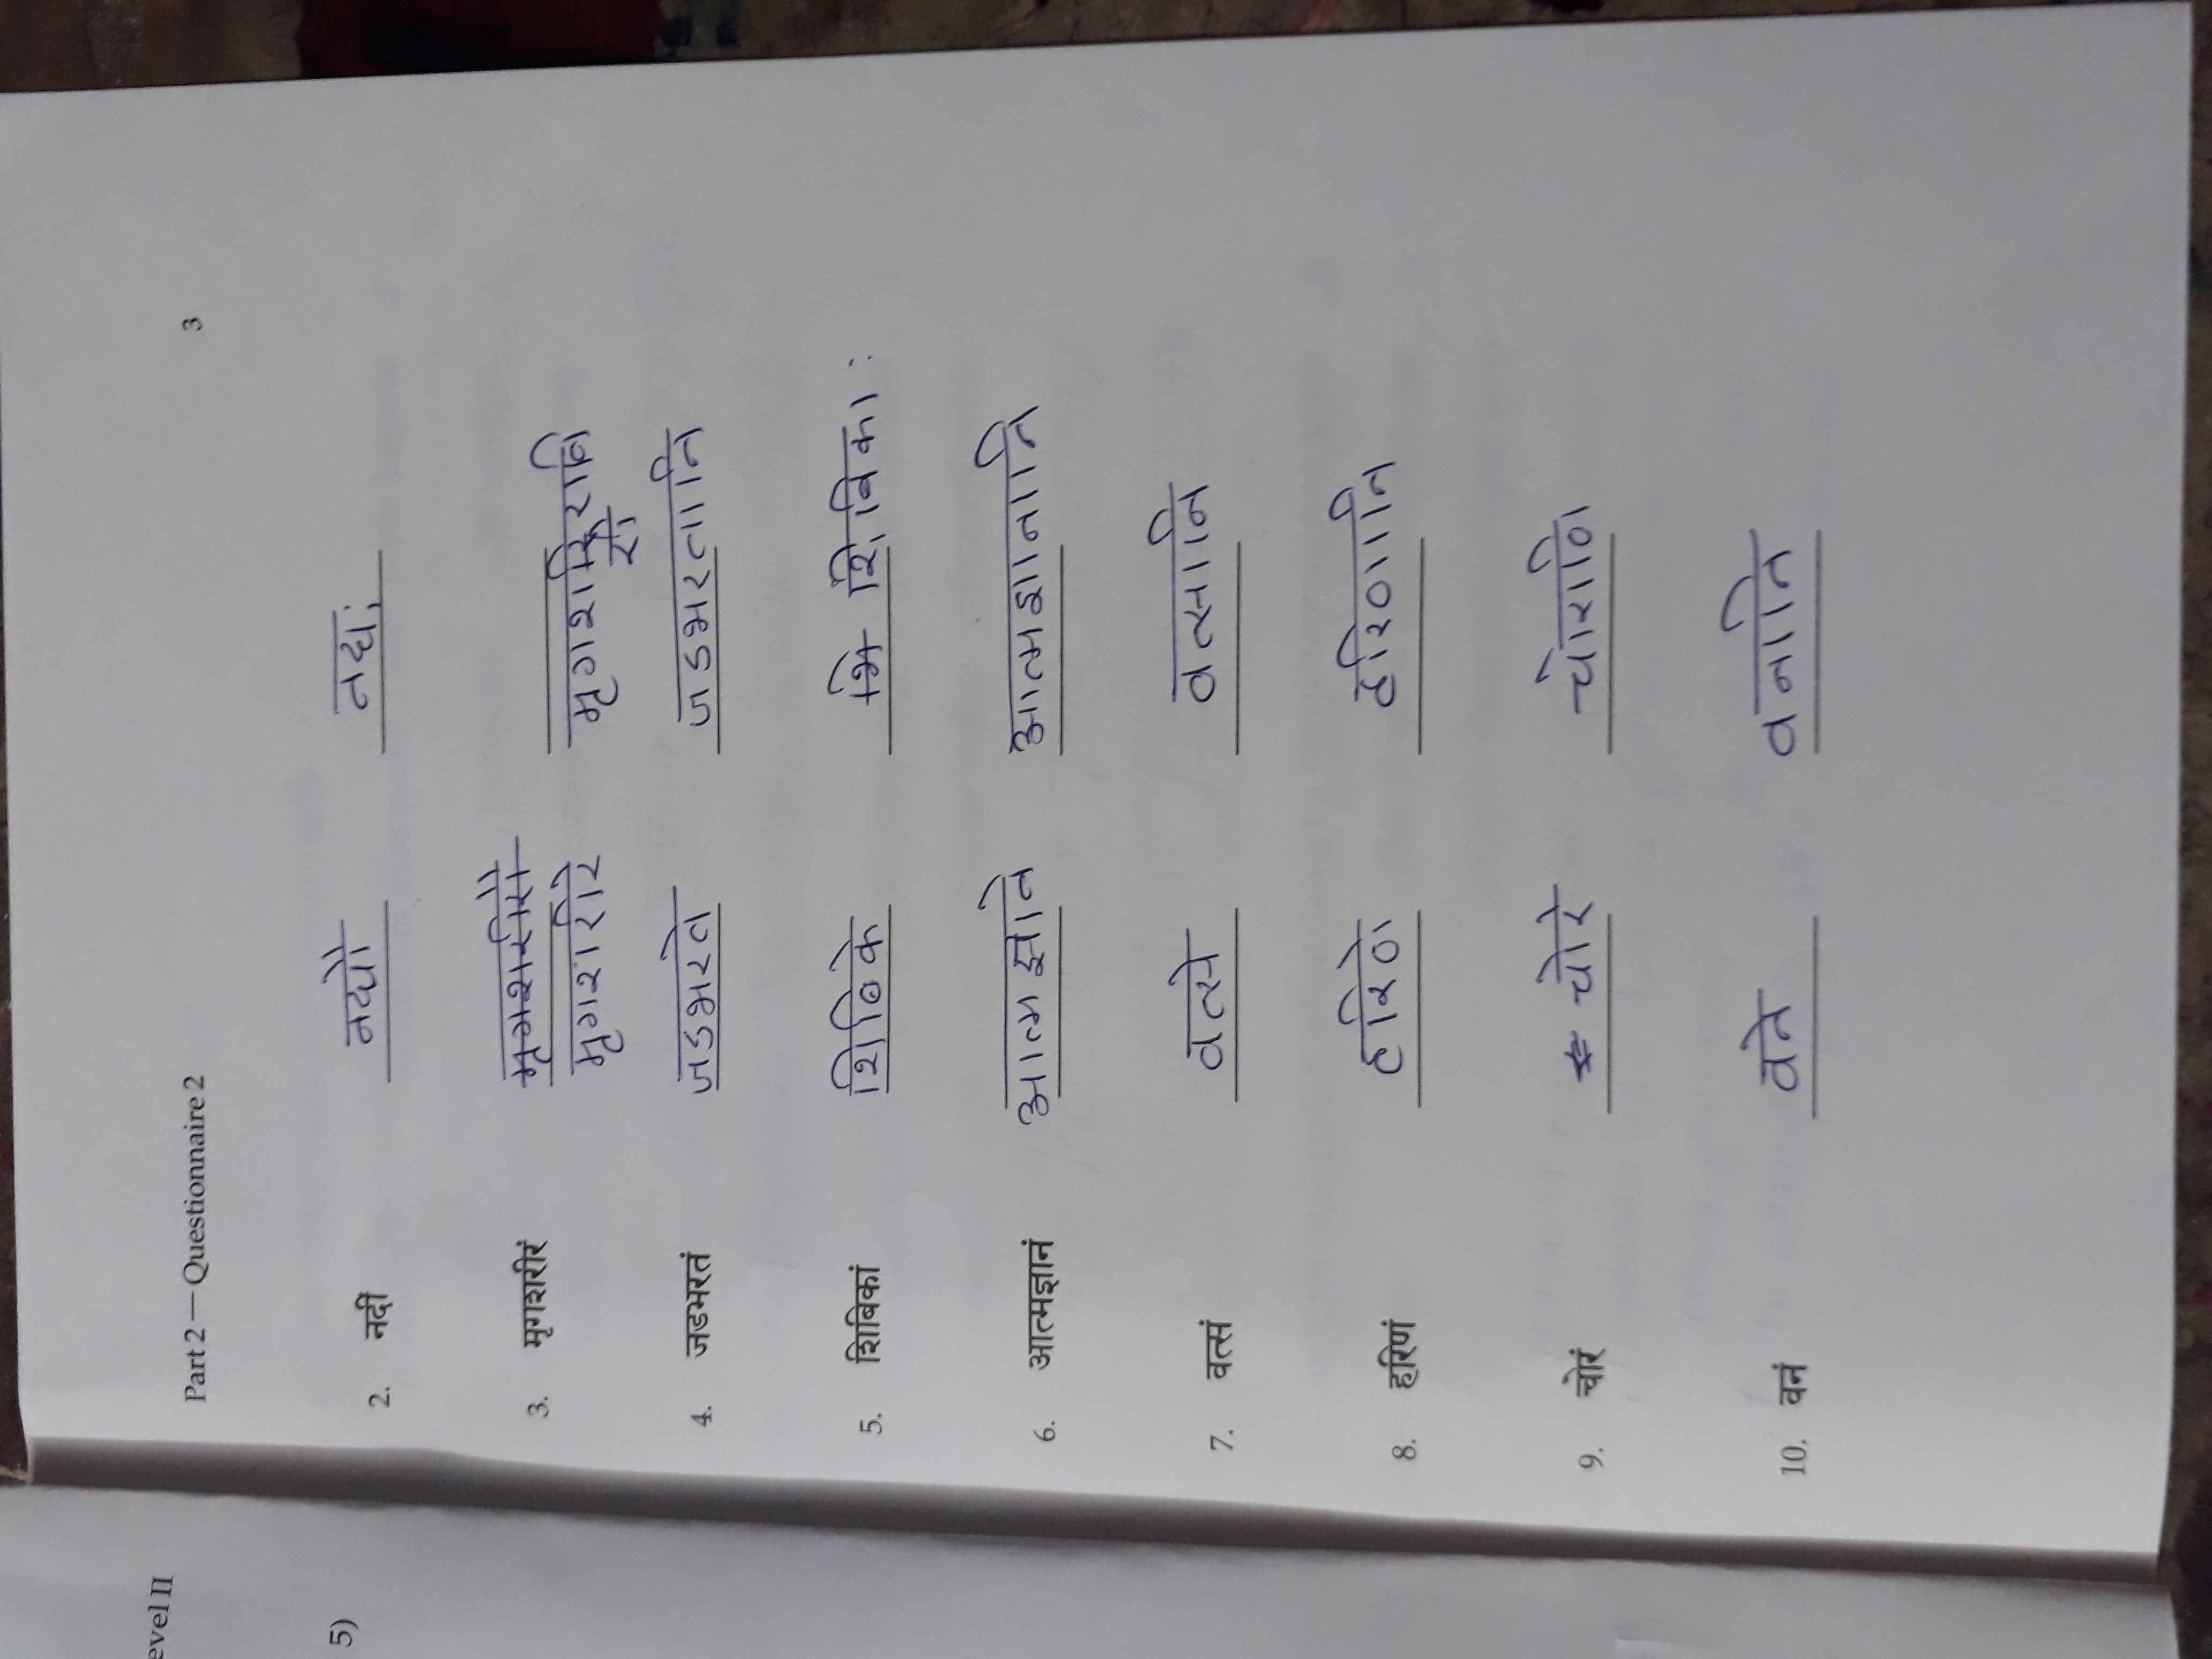 evel II
5)
Part 2 — Questionnaire 2 3
2. नदीं नद्यौ नद्यः
3. मृगशरीरं मृगशरीरौ
मृगशरीरे मृगशरिराणि
री
4. जडभरतं जडभरते जडभरतानि
5. शिबिकां शिबिके शिबिकाः
6. आत्मज्ञानं आत्मज्ञाने आत्मज्ञानानि
7. वत्सं वत्से वत्सानि
8. हरिणं हरिणे हरिणानि
9. चोरं चोरे चोराणि
10. वनं वने वनानि